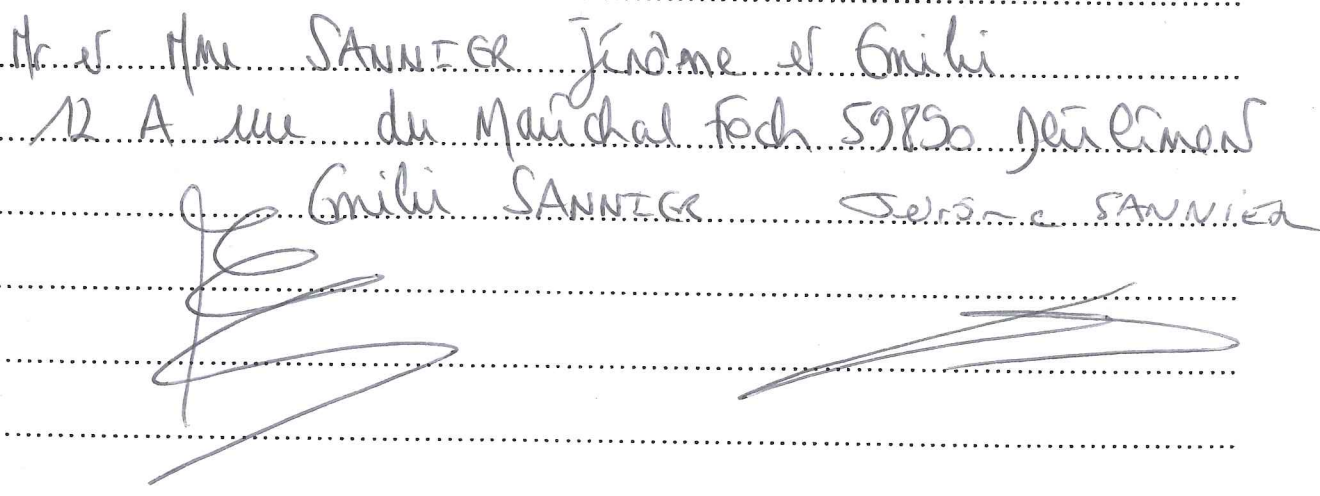 Mr et Mme SANNIER Jérôme et Emilie
12 A rue du Maréchal Foch 59890 Deûlémont
Emilie SANNIER Jérôme SANNIER